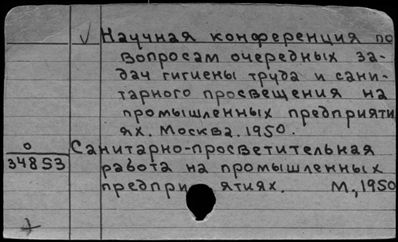 √ Научная конференция по
вопросам очередных за-
дач гигиены труда и сани-
тарного просвещения на
промышленных предприяти
ях. Москва. 1950.
0
34853
Санитарно-просветительная
работа на промышленных
предприятиях. М., 1950